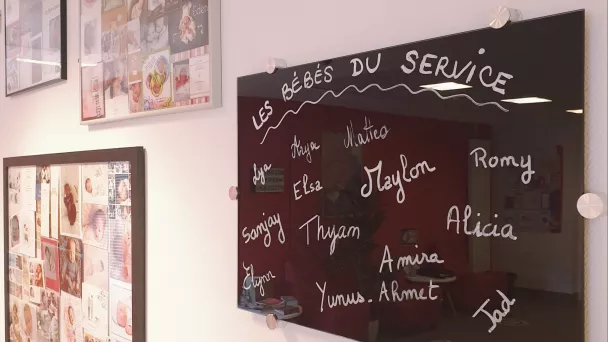 LES BÉBÉS DU SERVICE
Lya
Arya
Matteo
Romy
Elsa
Maylon
Sanjay
Thyam
Alicia
Amira
Elynn
Yunus-Ahmet
Jad